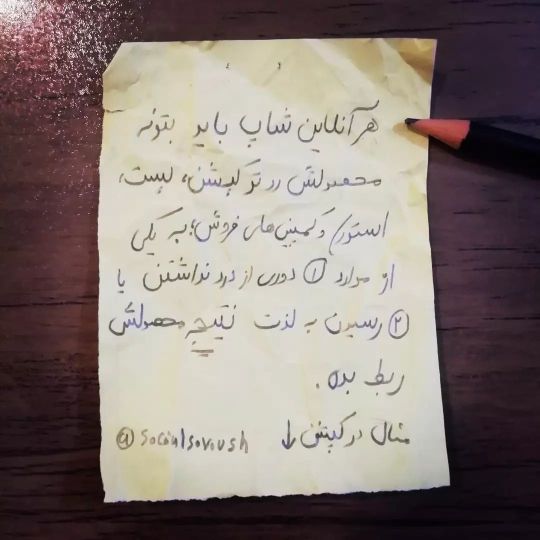 هر آنلاین شاپ باید بتونه
محصولش رو تو کپشن، پست،
استوری و کمپین‌های فروش؛ به یکی
از موارد ① دوری از درد نداشتن یا
② رسیدن به لذت نتیجه محصولش
ربط بده.
مثال در کپشن ↓ @socialsoroush